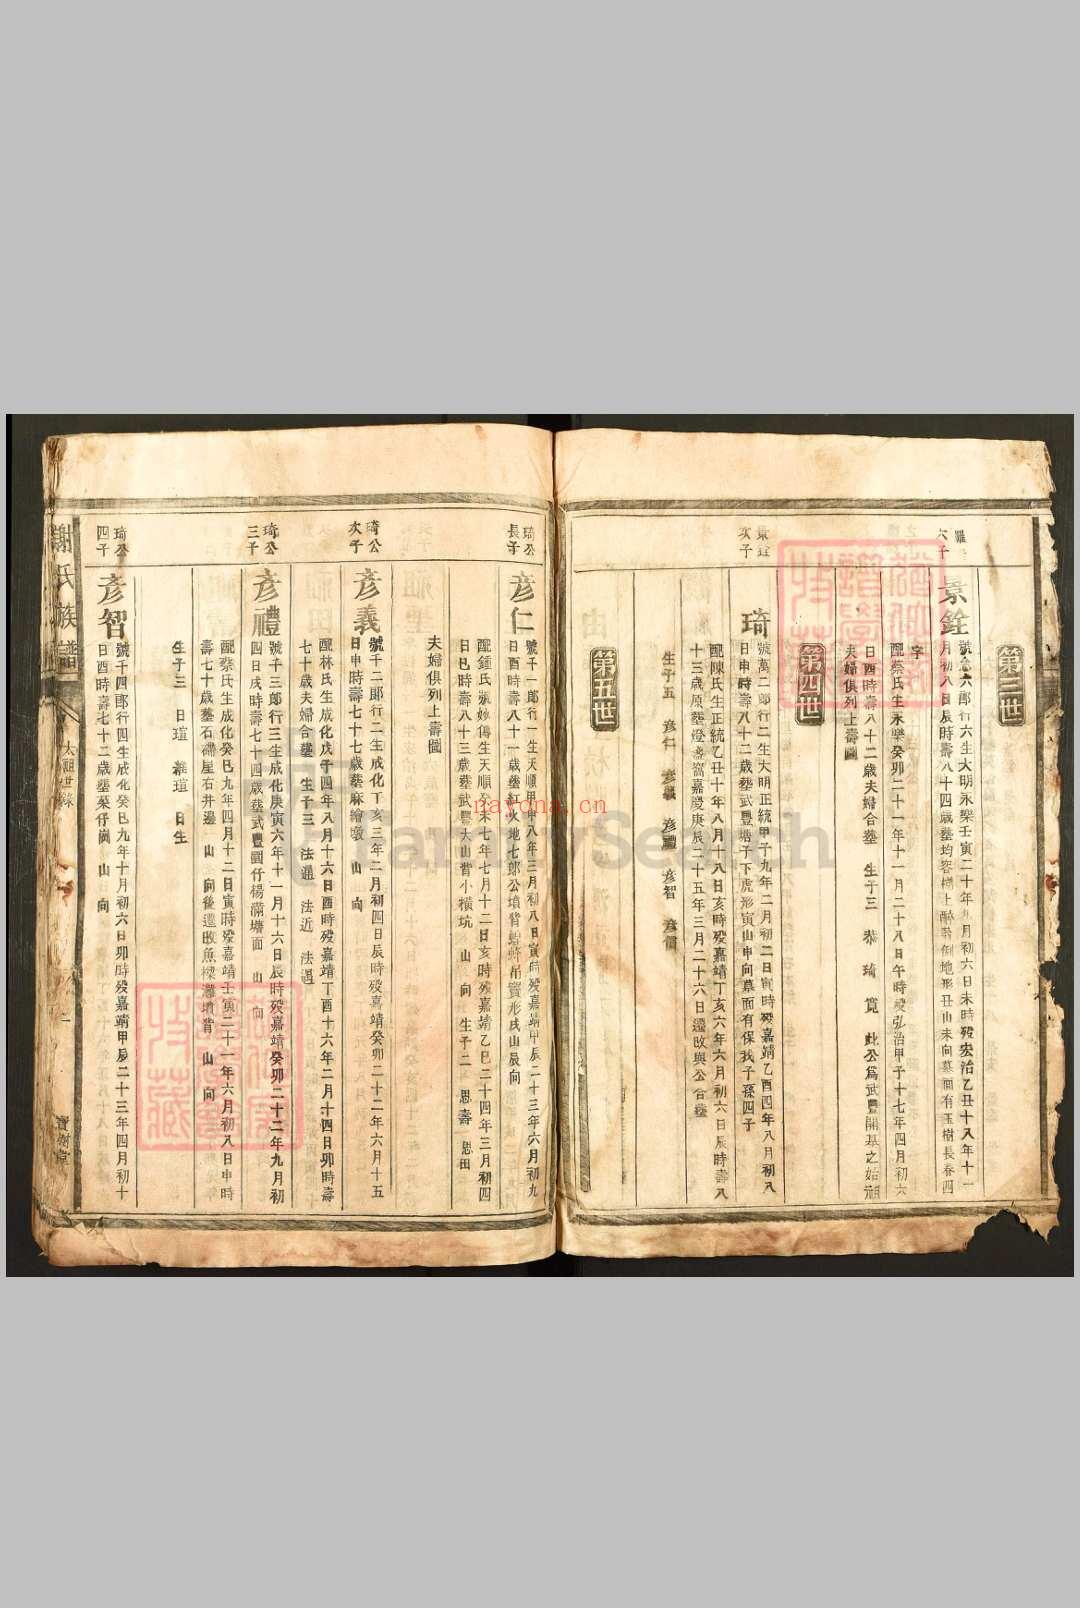 第三世
六子
景銓
號念六郎行六生大明永樂壬寅二十年 月初六日未時歿宏治乙丑十八年十一
月初八日辰時壽八十四歲塟均容 上醉翁倒地形丑山未向墓面有玉樹長春四
字
配蔡氏生永樂癸卯二十一年十一月二十八日午時歿弘治甲子十七年四月初六
日酉時壽八十二歲夫婦合塟 生子三 恭 琦 寬 此公爲武豐開基之始祖
夫婦俱列上壽圖
第四世
景銓
次子
琦
號萬二郎行二生大明正統甲子九年二月初二日寅時歿嘉靖乙酉四年八月初八
日申時壽八十二歲塟武豐 子下虎形寅山申向墓面有保我子孫四子
配陳氏生正統乙丑十年八月十八日亥時歿嘉靖丁亥六年六月初六日辰時壽八
十三歲原塟燈盞窩嘉慶庚辰二十五年三月二十六日遷改與公合塟
生子五 彥仁 彥義 彥禮 彥智 彥信
第五世
琦公
長子
彥仁
號千一郎行一生天順甲申八年三月初八日寅時歿嘉靖甲辰二十三年六月初九
日酉時壽八十一歲塟紅火地七郎公墳背 形戌山辰向
配鍾氏 生天順癸未七年七月十二日亥時歿嘉靖乙巳二十四年三月初四
日巳時壽八十三歲塟武豐大山背小橫坑 山 向 生子二 思壽 思田
夫婦俱列上壽圖
琦公
次子
彥義
號千二郎行二生成化丁亥三年二月初四日辰時歿嘉靖癸卯二十二年六月十五
日申時壽七十七歲塟麻繪墩 山 向
配林氏生成化戊子四年八月十六日酉時歿嘉靖丁酉十六年二月十四日卯時壽
七十歲夫婦合塟 生子三 法通 法近 法遇
琦公
三子
彥禮
號千三郎行三生成化庚寅六年十一月十六日辰時歿嘉靖癸卯二十二年九月初
四日戌時壽七十四歲塟武豐園仔楊滿塘面 山 向
配蔡氏生成化癸巳九年四月十二日寅時歿嘉靖壬寅二十一年六月初八日申時
壽七十歲塟石磜崖石井邊 山 向後遷改魚樑灘墳背 山 向
生子三 日瑄 維瑄 日生
琦公
四子
彥智
號千四郎行四生成化癸巳九年十月初六日卯時歿嘉靖甲辰二十三年四月初十
日酉時壽七十二歲塟菜仔崗 山 向
謝氏族譜
太祖世錄
二
寶樹堂
FamilySearch
nayona.cn